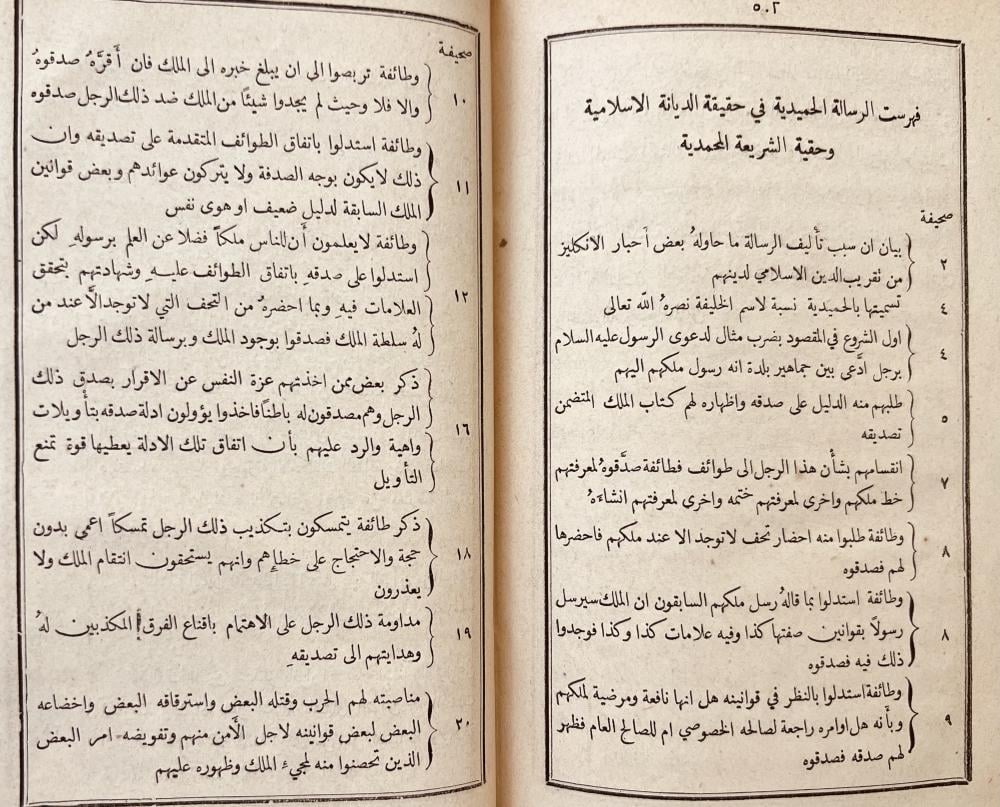 ٥٠٢
فهرست الرسالة الحميدية في حقيقة الديانة الاسلامية
وحقية الشريعة المحمدية
صحيفة
٢ بيان ان سبب تأليف الرسالة ما حاولهُ بعض أحبار الانكليز
من تقريب الدين الاسلامي لدينهم
٤ تسميتها بالحميدية نسبة لاسم الخليفة نصرهُ الله تعالى
٤ اول الشروع في المقصود بضرب مثال لدعوى الرسول عليه السلام
برجل ادَّعى بين جماهير بلدة انه رسول ملكهم اليهم
٥ طلبهم منه الدليل على صدقه واظهاره لهم كتاب الملك المتضمن
تصديقه
٧ انقسامهم بشأن هذا الرجل الى طوائف فطائفة صدَّقوهُ لمعرفتهم
خط ملكهم واخرى لمعرفتهم ختمه واخرى لمعرفتهم انشاءَهُ
٨ وطائفة طلبوا منه احضار تحف لا توجد الا عند ملكهم فاحضرها
لهم فصدقوه
٨ وطائفة استدلوا بما قالهُ رسل ملكهم السابقون ان الملك سيرسل
رسولاً بقوانين صفتها كذا وفيه علامات كذا وكذا فوجدوا
ذلك فيه فصدقوه
٩ وطائفة استدلوا بالنظر في قوانينه هل انها نافعة ومرضية لملكهم
وبأنه هل اوامره راجعة لصالحه الخصوصي ام للصالح العام فظهر
لهم صدقه فصدقوه
صحيفة
١٠ وطائفة تربصوا الى ان يبلغ خبره الى الملك فان أقرَّهُ صدقوهُ
والا فلا وحيث لم يجدوا شيئًا من الملك ضد ذلك الرجل صدقوه
١١ وطائفة استدلوا باتفاق الطوائف المتقدمة على تصديقه وان
ذلك لا يكون بوجه الصدفة ولا يتركون عوائدهم وبعض قوانين
الملك السابقة لدليل ضعيف او هوى نفس
١٢ وطائفة لا يعلمون أن للناس ملكاً فضلا عن العلم برسولهِ لكن
استدلوا على صدقهِ باتفاق الطوائف عليهِ وشهادتهم بتحقق
العلامات فيهِ وبما احضرهُ من التحف التي لا توجد الاَّ عند من
لهُ سلطة الملك فصدقوا بوجود الملك وبرسالة ذلك الرجل
١٦ ذكر بعض ممن اخذتهم عزة النفس عن الاقرار بصدق ذلك
الرجل وهم مصدقون له باطناً فاخذوا يؤولون ادلة صدقه بتأويلات
واهية والرد عليهم بأن اتفاق تلك الادلة يعطيها قوة تمنع
التأويل
١٨ ذكر طائفة يتمسكون بتكذيب ذلك الرجل تمسكاً اعمى بدون
حجة والاحتجاج على خطإهم وانهم يستحقون انتقام الملك ولا
يعذرون
١٩ مداومة ذلك الرجل على الاهتمام باقناع الفرق المكذبين لهُ
وهدايتهم الى تصديقهِ
٢٠ مناصبته لهم الحرب وقتله البعض واسترقاقه البعض واخضاعه
البعض لبعض قوانينه لاجل الأمن منهم وتفويضه امر البعض
الذين تحصنوا منه لمجيء الملك وظهوره عليهم